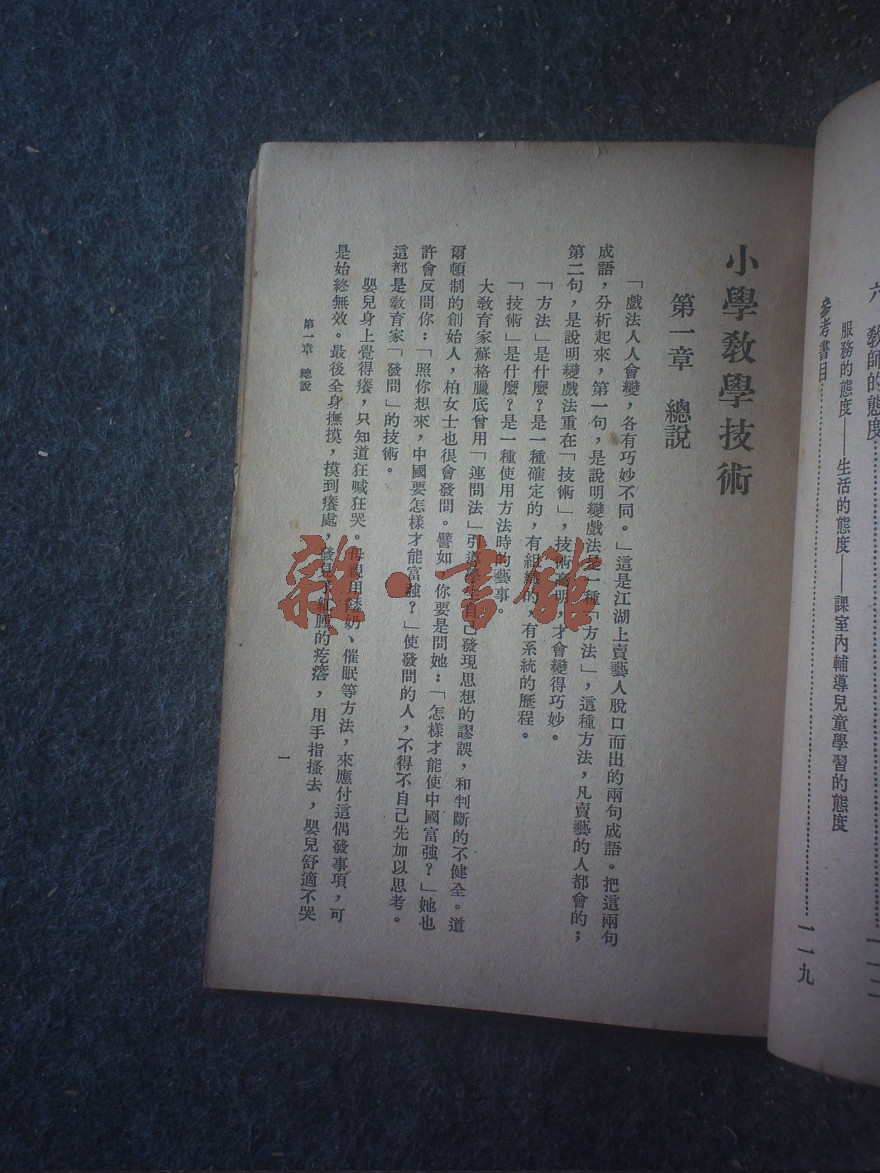 六 教師的態度
服務的態度——生活的態度——課室內輔導兒童學習的態度
參考書目……………………一一九
小學教學技術
第一章 總說
「戲法人人會變，各有巧妙不同。」這是江湖上賣藝人脫口而出的兩句成語。把這兩句
成語，分析起來，第一句，是說明變戲法是一種「方法」，這種方法，凡賣藝的人都會的；
第二句，是說明變戲法重在「技術」，技術高明，才會變得巧妙。
「方法」是什麼？是一種確定的，有組織的，有系統的歷程。
「技術」是什麼？是一種使用方法時的藝事。
大教育家蘇格臘底曾用「連問法」引導學生自己發現思想的謬誤，和判斷的不健全。道
爾頓制的創始人，柏女士也很會發問。譬如，你要是問她：「怎樣才能使中國富強？」她也
許會反問你：「照你想來，中國要怎樣才能富強？」使發問的人，不得不自己先加以思考。
這都是教育家「發問」的技術。
嬰兒身上覺得癢，只知道狂喊狂哭。母親用餵奶、催眠等方法，來應付這偶發事項，可
是始終無效。最後全身撫摸，摸到癢處，發見了紅腫的疙瘩，用手指搔去，嬰兒舒適不哭
第一章 總說
一
雜·書館